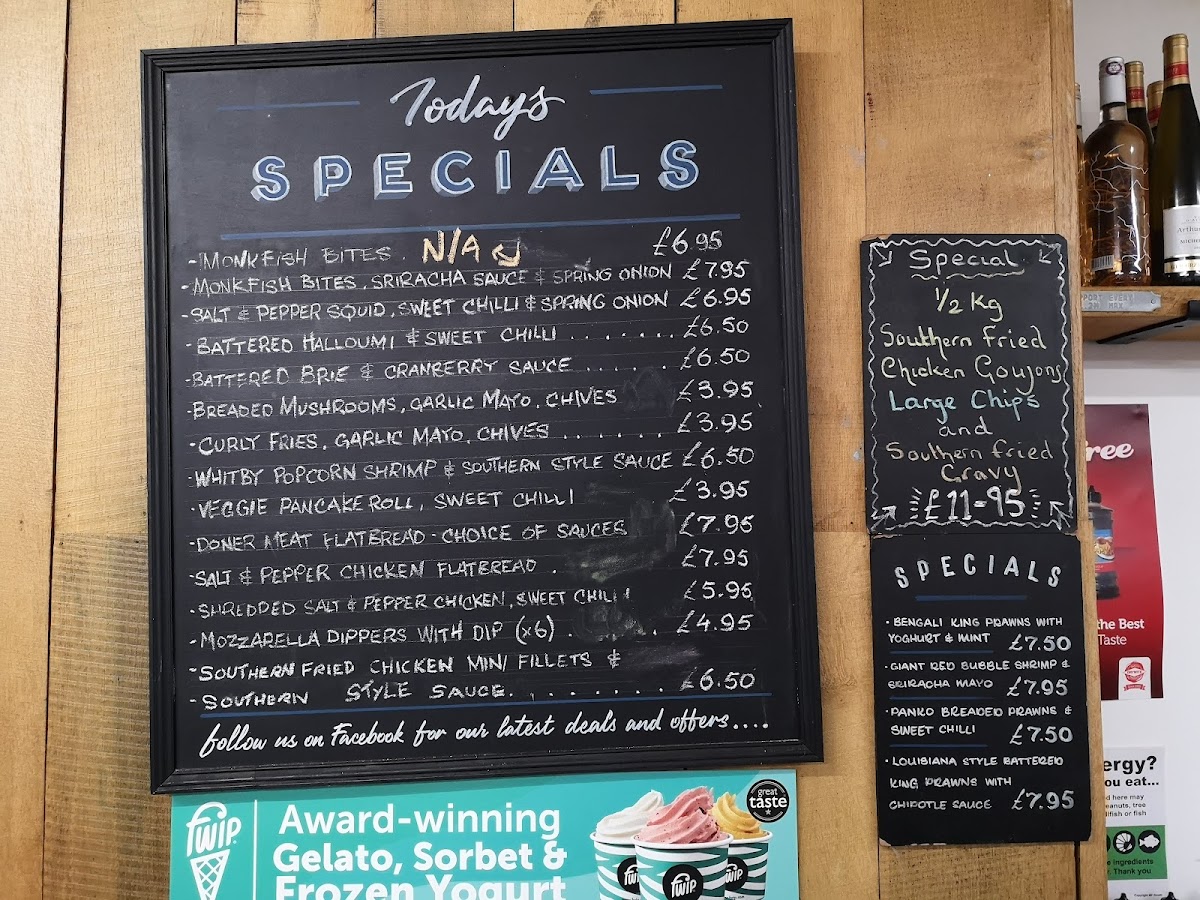 Todays
SPECIALS
- MONKFISH BITES . N/A £6.95
- MONKFISH BITES, SRIRACHA SAUCE & SPRING ONION £7.95
- SALT & PEPPER SQUID, SWEET CHILLI & SPRING ONION £6.95
- BATTERED HALLOUMI & SWEET CHILLI . . . . . . . £6.50
- BATTERED BRIE & CRANBERRY SAUCE . . . . . . £6.50
- BREADED MUSHROOMS, GARLIC MAYO, CHIVES £3.95
- CURLY FRIES, GARLIC MAYO, CHIVES . . . . . . . £3.95
- WHITBY POPCORN SHRIMP & SOUTHERN STYLE SAUCE £6.50
- VEGGIE PANCAKE ROLL, SWEET CHILLI £3.95
- DONER MEAT FLATBREAD - CHOICE OF SAUCES £7.95
- SALT & PEPPER CHICKEN FLATBREAD . £7.95
- SHREDDED SALT & PEPPER CHICKEN, SWEET CHILLI £5.95
- MOZZARELLA DIPPERS WITH DIP (x6) . . £4.95
- SOUTHERN FRIED CHICKEN MINI FILLETS &
- SOUTHERN STYLE SAUCE. . . . . . . . . £6.50
follow us on Facebook for our latest deals and offers....
Special
1/2 Kg
Southern Fried
Chicken Goujons
Large Chips
and
Southern fried
Gravy
£11-95
SPECIALS
• BENGALI KING PRAWNS WITH
YOGHURT & MINT £7.50
• GIANT RED BUBBLE SHRIMP &
SRIRACHA MAYO £7.95
• PANKO BREADED PRAWNS &
SWEET CHILLI £7.50
• LOUISIANA STYLE BATTERED
KING PRAWNS WITH
CHIPOTLE SAUCE £7.95
fwip
Award-winning
Gelato, Sorbet &
Frozen Yogurt
great
taste
fwip
ree
the Best
Taste
ergy?
ou eat...
d here may
eanuts, tree
fish or fish
e ingredients
. Thank you